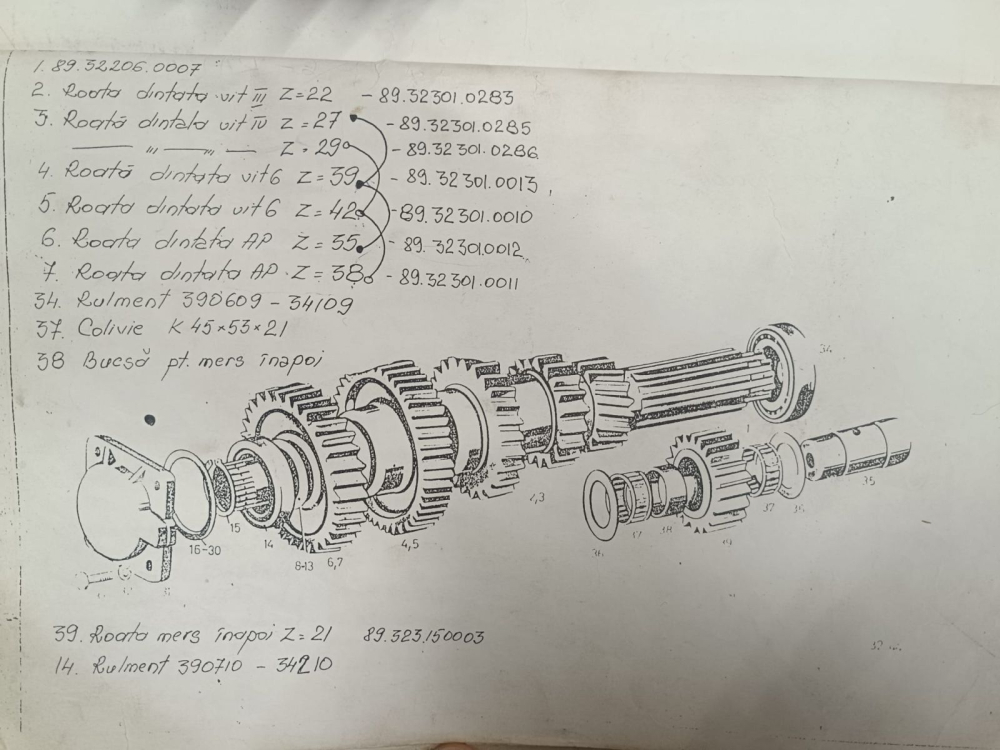 1. 89.32206.0007
2. Roata dintata vit III Z=22 - 89.32301.0283
3. Roată dintata vit IV Z=27 - 89.32301.0285
—— " —— " —— Z=29 - 89.32301.0286
4. Roată dintata vit 6 Z=39 - 89.32301.0013
5. Roata dintata vit 6 Z=42 - 89.32301.0010
6. Roata dintata AP Z=35 - 89.32301.0012
7. Roata dintata AP. Z=38 - 89.32301.0011
34. Rulment 390609 - 34109
37. Colivie K 45×53×21
38 Bucsă pt. mers înapoi
34
1
35
2,3
37
36
15
16-30
14
4,5
8-13
6,7
36
37
38
39
31
39. Roata mers înapoi Z=21 89.323.150003
14. Rulment 390710 - 34210